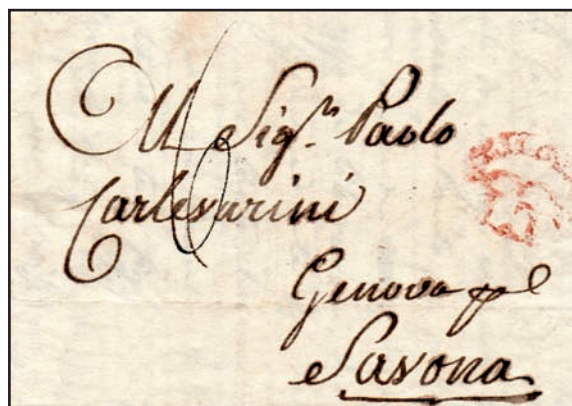 Al Sig.r Paolo
Carlevarini
6
Genova per
Savona